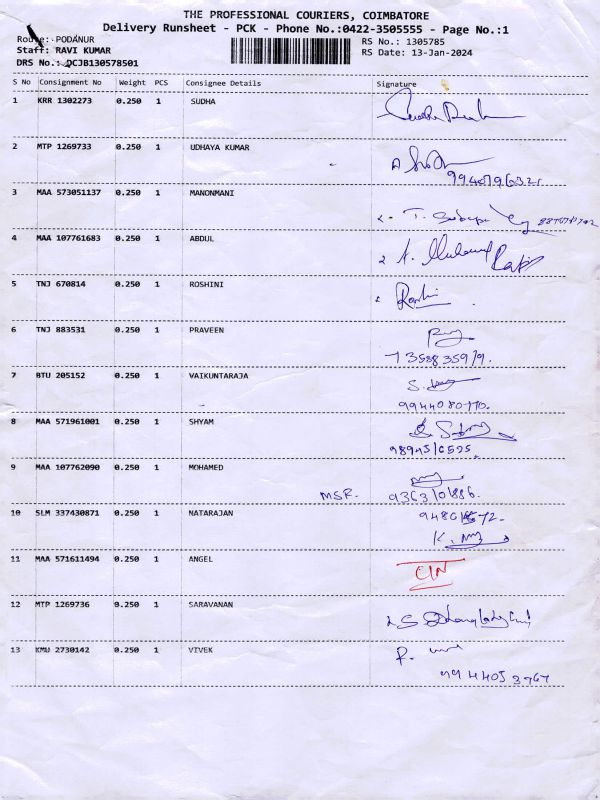 THE PROFESSIONAL COURIERS, COIMBATORE
Delivery Runsheet - PCK - Phone No.:0422-3505555 - Page No.:1
Route: PODANUR
RS No.: 1305785
Staff: RAVI KUMAR
RS Date: 13-Jan-2024
DRS No.: QCJB130578501
S No Consignment No Weight PCS Consignee Details Signature
1 KRR 1302273 0.250 1 SUDHA
2 MTP 1269733 0.250 1 UDHAYA KUMAR
9940796321
3 MAA 573051137 0.250 1 MANONMANI
4 MAA 107761683 0.250 1 ABDUL
5 TNJ 670814 0.250 1 ROSHINI
Roshi
6 TNJ 883531 0.250 1 PRAVEEN
7 BTU 205152 0.250 1 VAIKUNTARAJA
9944080770.
8 MAA 571961001 0.250 1 SHYAM
9 MAA 107762090 0.250 1 MOHAMED
MSR. 9363101886.
10 SLM 337430871 0.250 1 NATARAJAN
11 MAA 571611494 0.250 1 ANGEL
12 MTP 1269736 0.250 1 SARAVANAN
13 KMU 2730142 0.250 1 VIVEK
9944053767